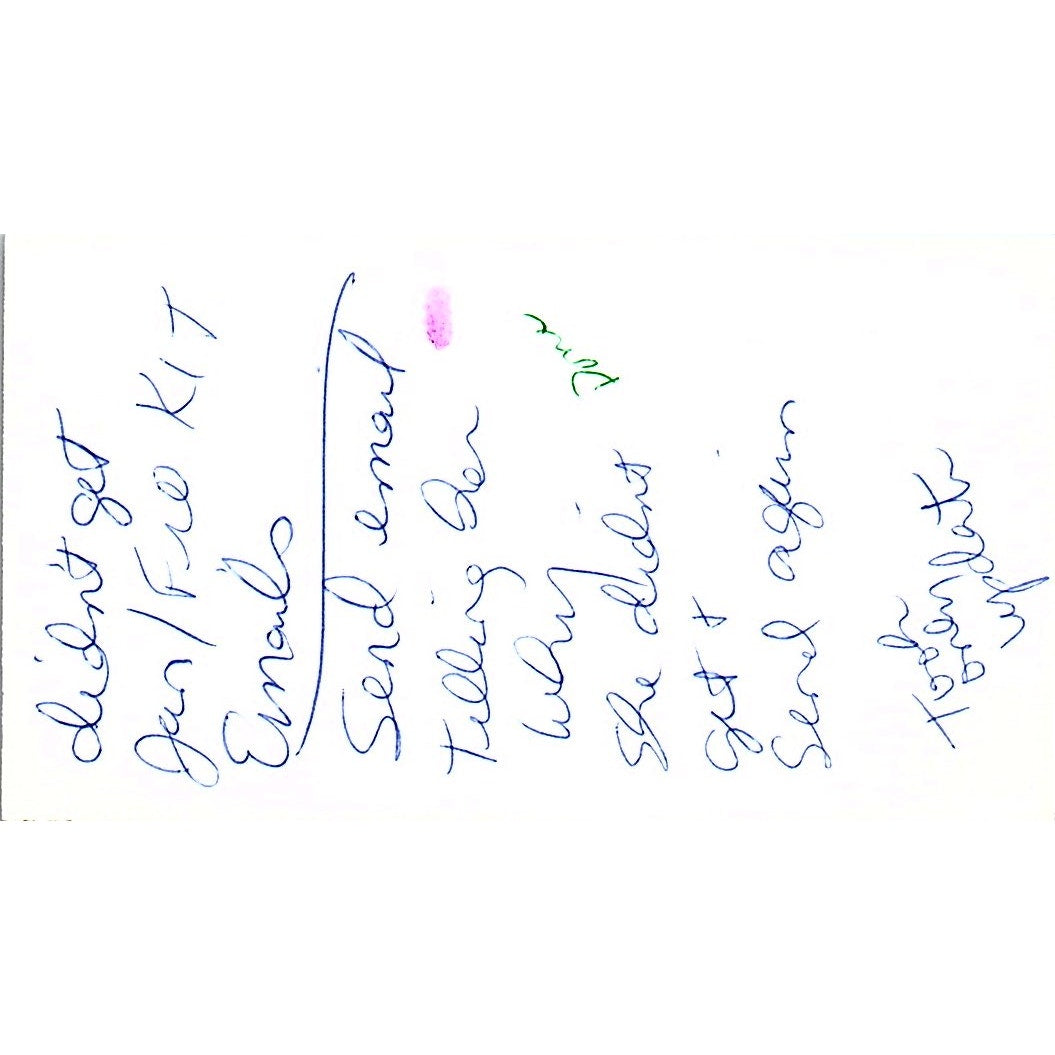 didn't get
Jan/Feb KIT
Emails
Send email
Telling her
why
She didnt
get +
Send again
Done
Took